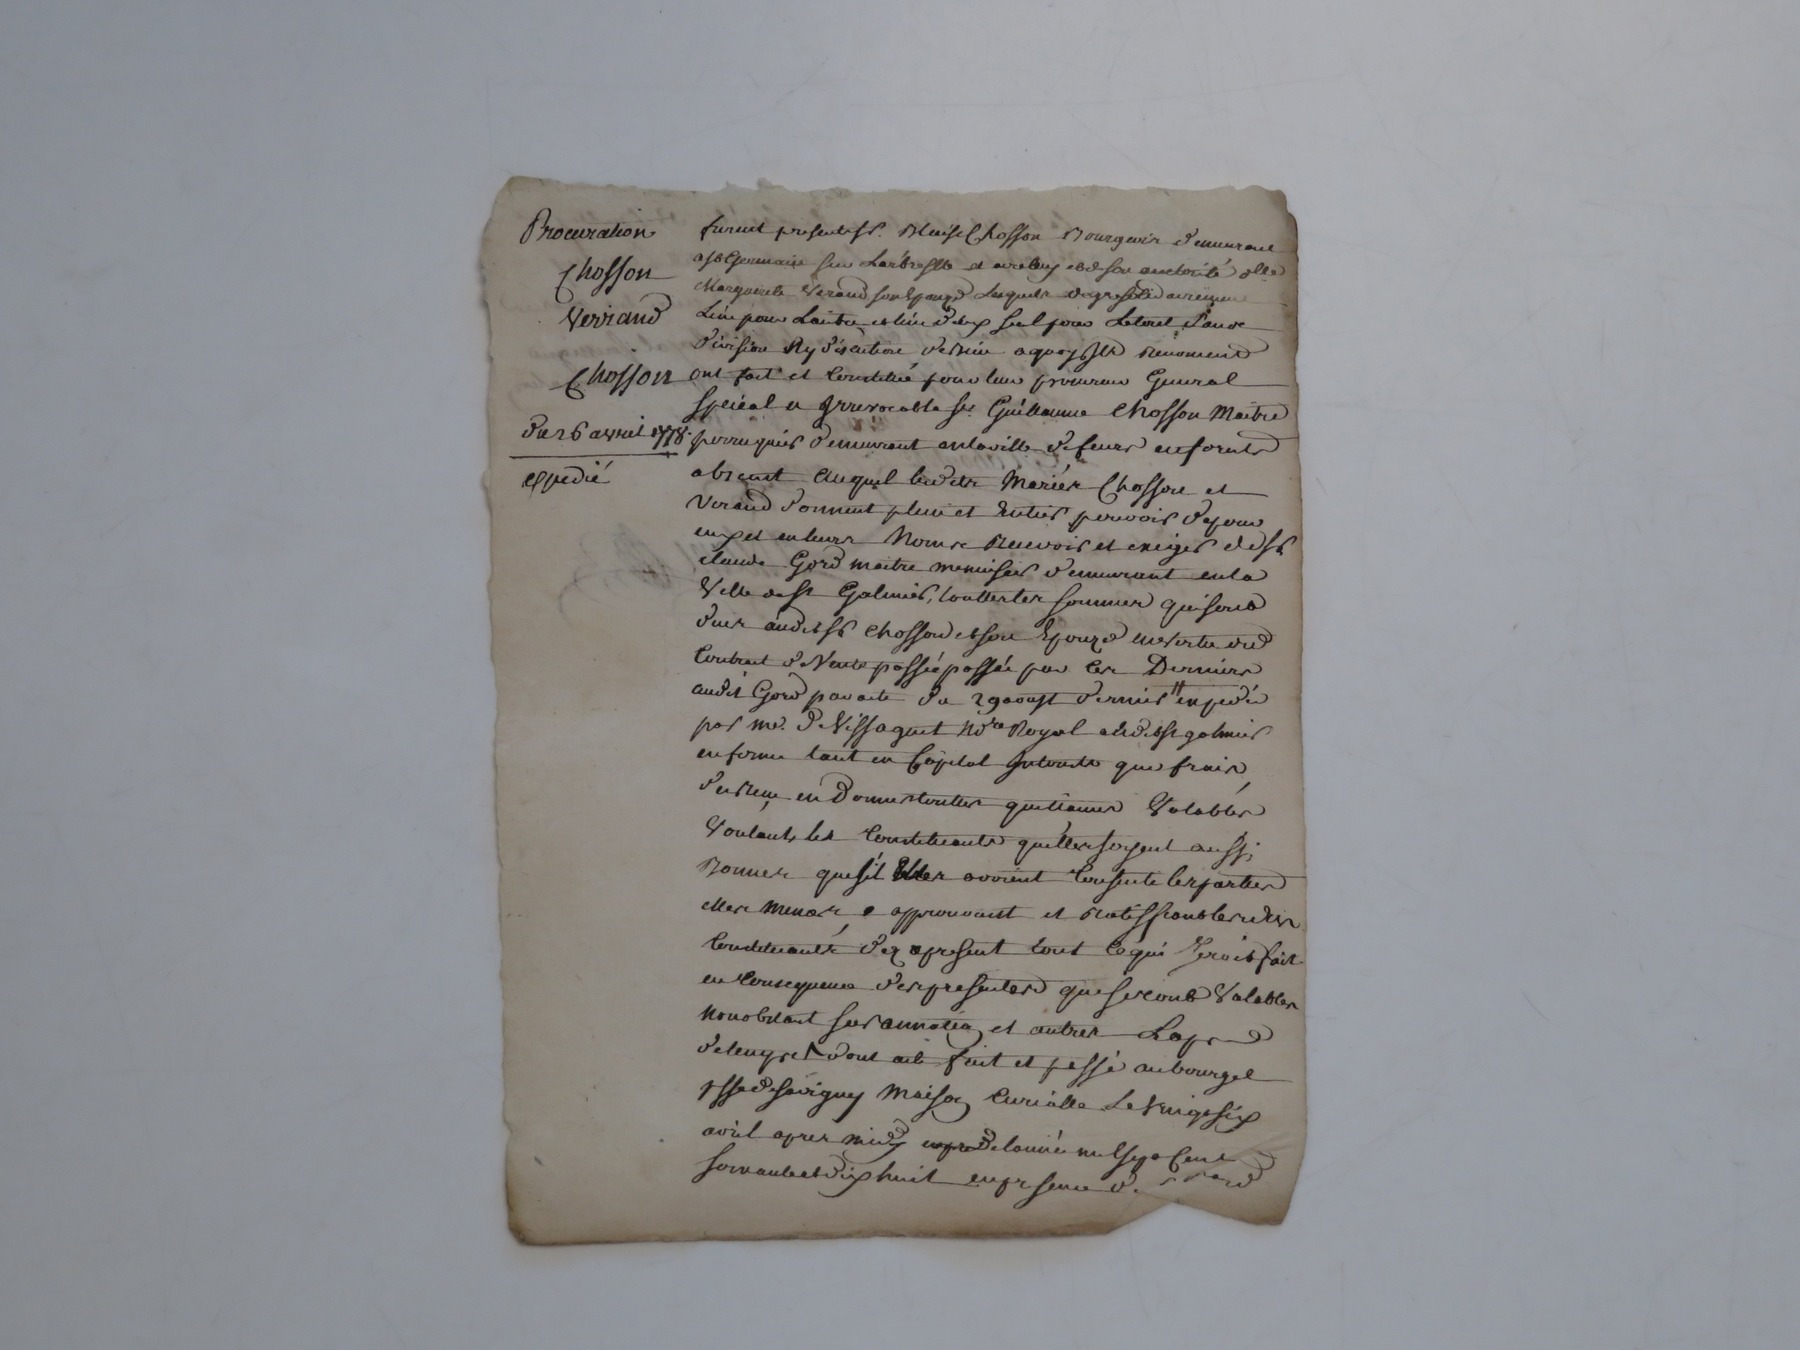 Procuration
Chosson
Verrand
Chosson
du 26 avril 1778.
expedié
furent presents sr. Blaise Chosson Bourgeois demeurant
a st Germain sur Larbresle et avec luy et de son authorité dlle
Marguerite Verand son Epouze lesquels de gré solidairement
Lun pour Lautre et lun deux seul pour Letout sans
division ny discution dernier a quoy ils renoncent
ont fait et Constitué pour leur procureur General
special et Irrevocable sr. Guillaume Chosson Maitre
perruquier demeurant en la ville de feurs en forests
absent auquel lesdits Mariés Chosson et
Verand donnent plein et Entier pouvoir de pour
eux et en leurs Noms Recevoir et exiger de sr
claude Gord maitre menuisier demeurant en la
Ville de st Galmier, touttes les sommes qui sont
dues audit sr Chosson et son Epouze en vertu du
Contrat de Vente passée passée par Ces Derniers
audit Gord par acte du 29 aoust dernier expedié
par me. deVissaguet Nore Royal audit st galmier
en forme tant en Capital Interests que frais,
du Reçu en Donner touttes quittances Valables
Voulants les Constituants quelles soyent aussi
Bonnes que si Elles avoient Consenti les parties
elles Memes approuvant et Ratiffiant lesdits
Constituants des apresent tout Ce qui serait fait
en Consequence des presentes que seront Valables
nonobstant surannation et autres Laps
de temps dont acte fait et passé au bourg et
psse de Savigny Maison Curialle Le Vingt six
avril apres midy de lannée mil sept Cent
soixante et dix huit en presence de